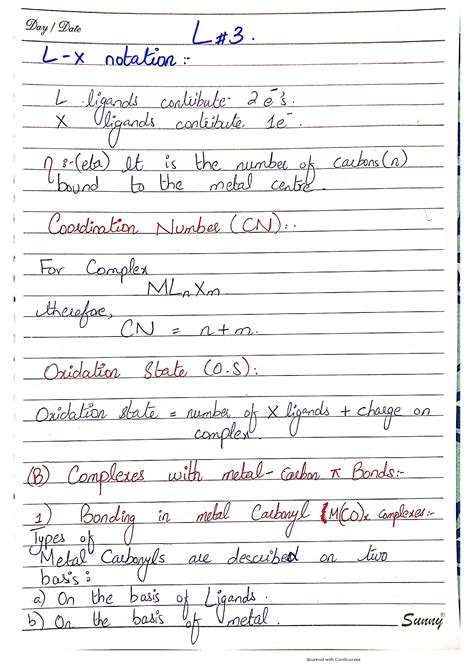 Day / Date
L#3.
L-X notation:-
L ligands contribute 2 e⁻s.
X ligands contribute 1e⁻.
η :-(eta) It is the number of carbons (n)
bound to the metal centre
Coordination Number (CN):-
For Complex
MLnXm
therefore,
CN = n+m.
Oxidation State (O.S):
Oxidation state = number of X ligands + charge on
complex.
(B) Complexes with metal-Carbon π Bonds:-
1) Bonding in metal Carbonyl [M(CO)x complexes:-
Types of
Metal Carbonyls are described on two
basis:
a) On the basis of Ligands.
b) On the basis of metal.
Sunny
Scanned with CamScanner